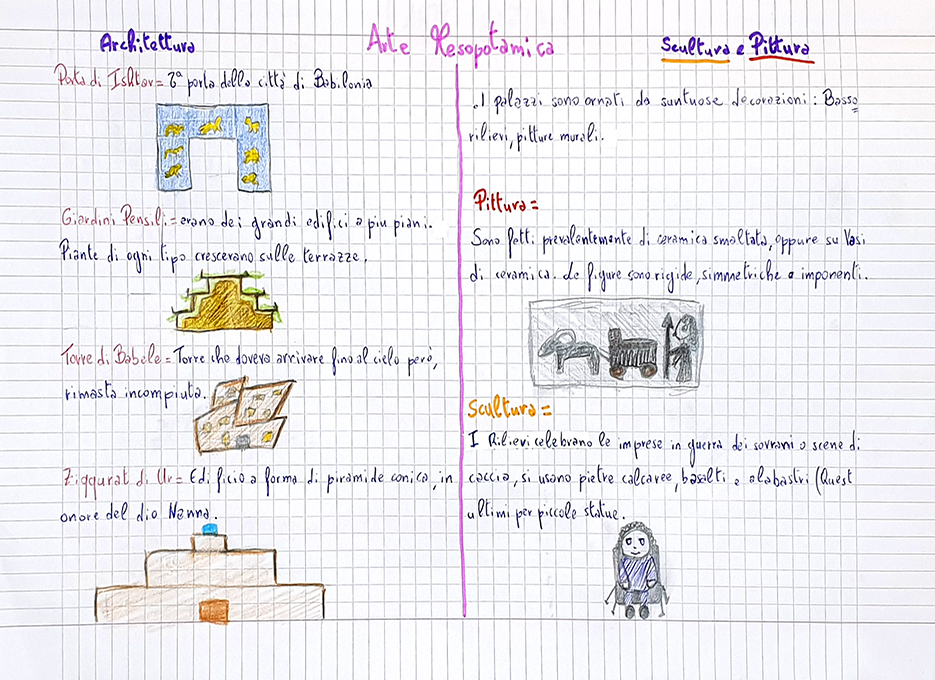 Arte Mesopotamica
Architettura
Porta di Ishtar = 8ª porta della città di Babilonia
Giardini Pensili = erano dei grandi edifici a piu piani.
Piante di ogni tipo crescevano sulle terrazze.
Torre di Babele = Torre che doveva arrivare fino al cielo però,
rimasta incompiuta.
Ziqqurat di Ur = Edificio a forma di piramide conica, in
onore del dio Nanna.
Scultura e Pittura
I palazzi sono ornati da suntuose decorazioni : Basso
rilievi, pitture murali.
Pittura =
Sono fatti prevalentemente di ceramica smaltata, oppure su Vasi
di ceramica. Le figure sono rigide, simmetriche e imponenti.
Scultura =
I Rilievi celebrano le imprese in guerra dei sovrani o scene di
caccia, si usano pietre calcaree, basalti e alabastri (Quest
ultimi per piccole statue.